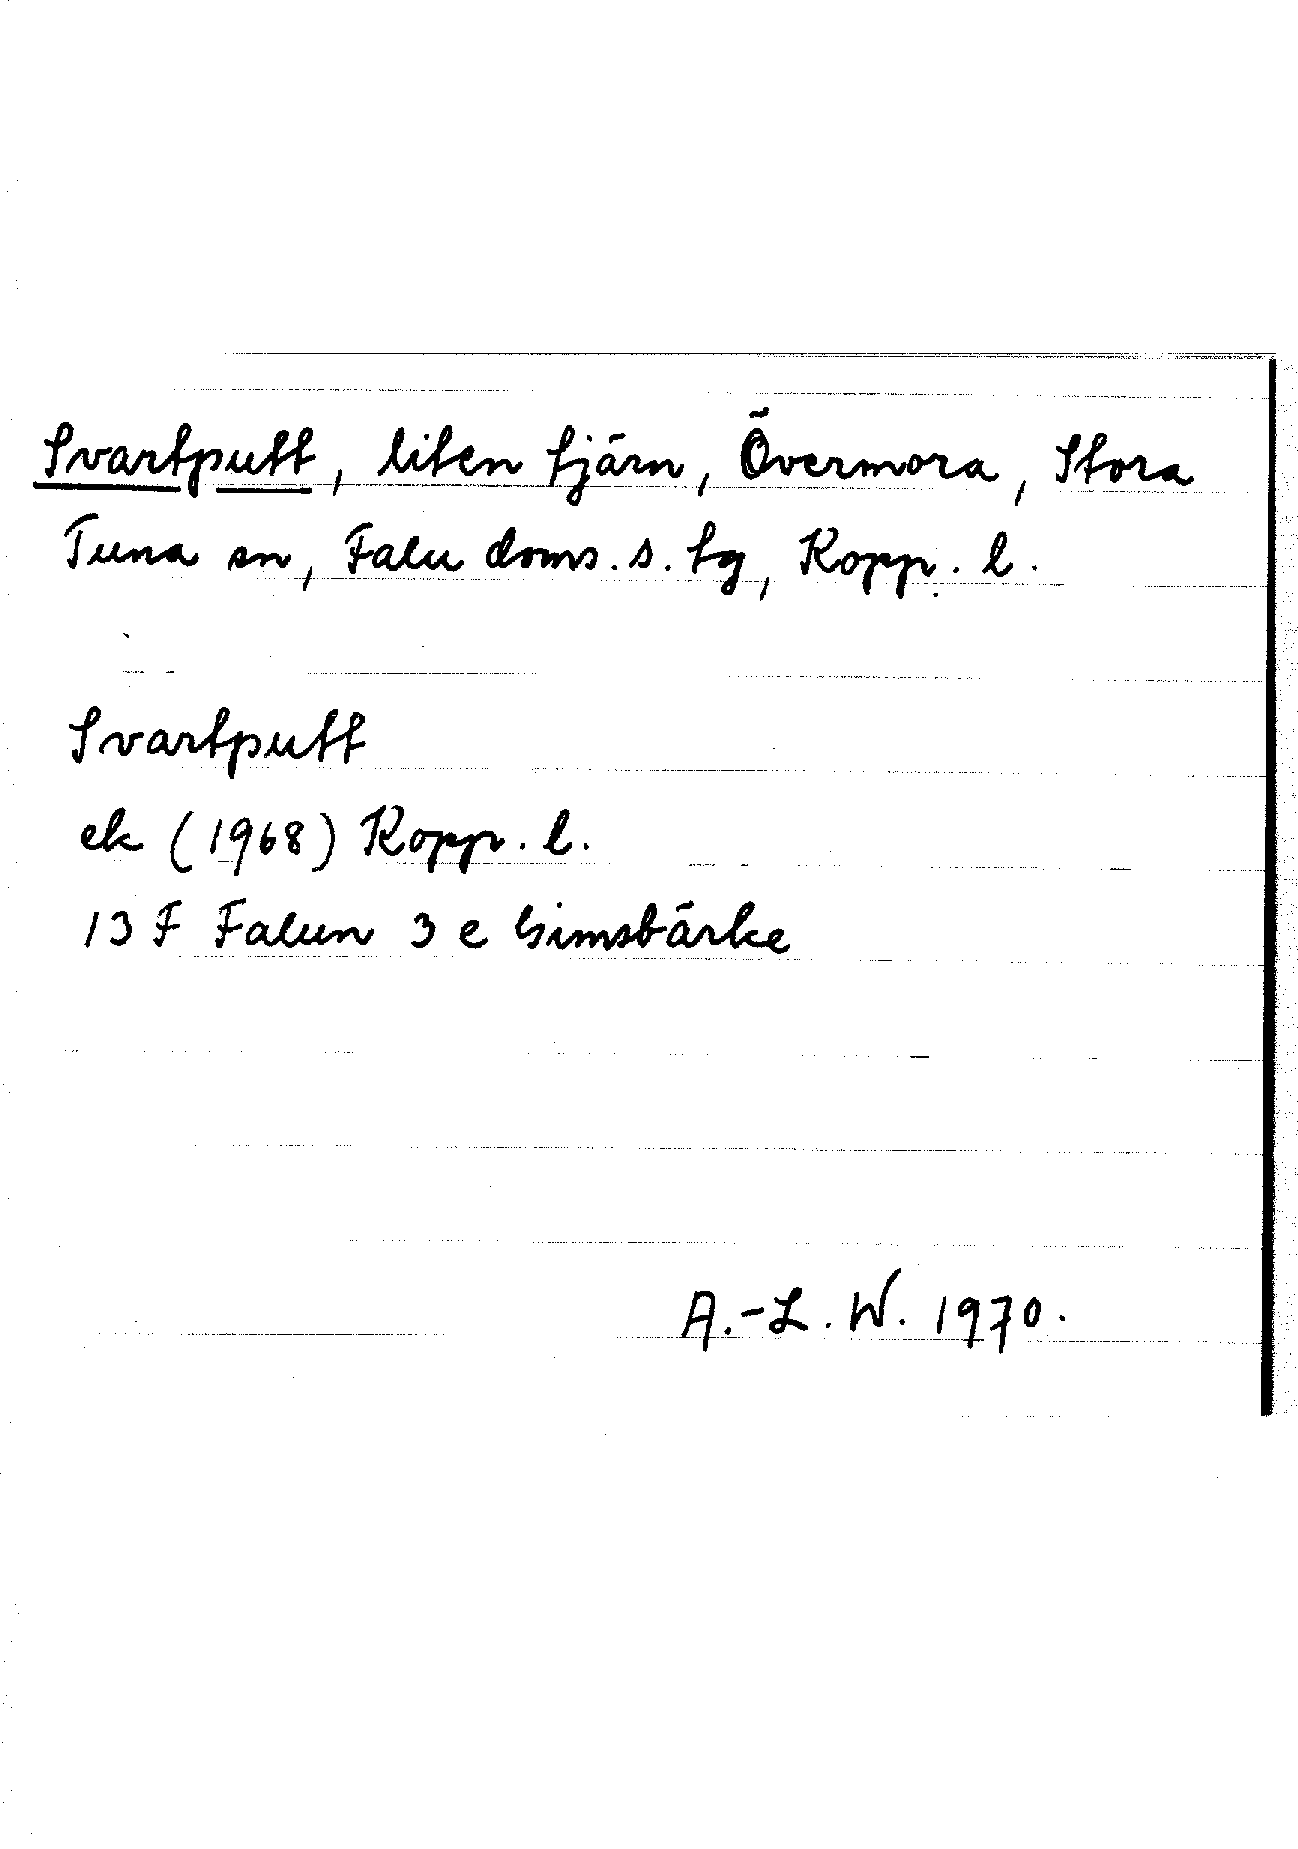 Svartputt, liten tjärn, Övermora, Stora
Tuna sn, Falu doms.s. tg, Kopp. l.
Svartputt
ek (1968) Kopp. l.
13 F Falun 3 e Gimsbärke
A.-L. W. 1970.